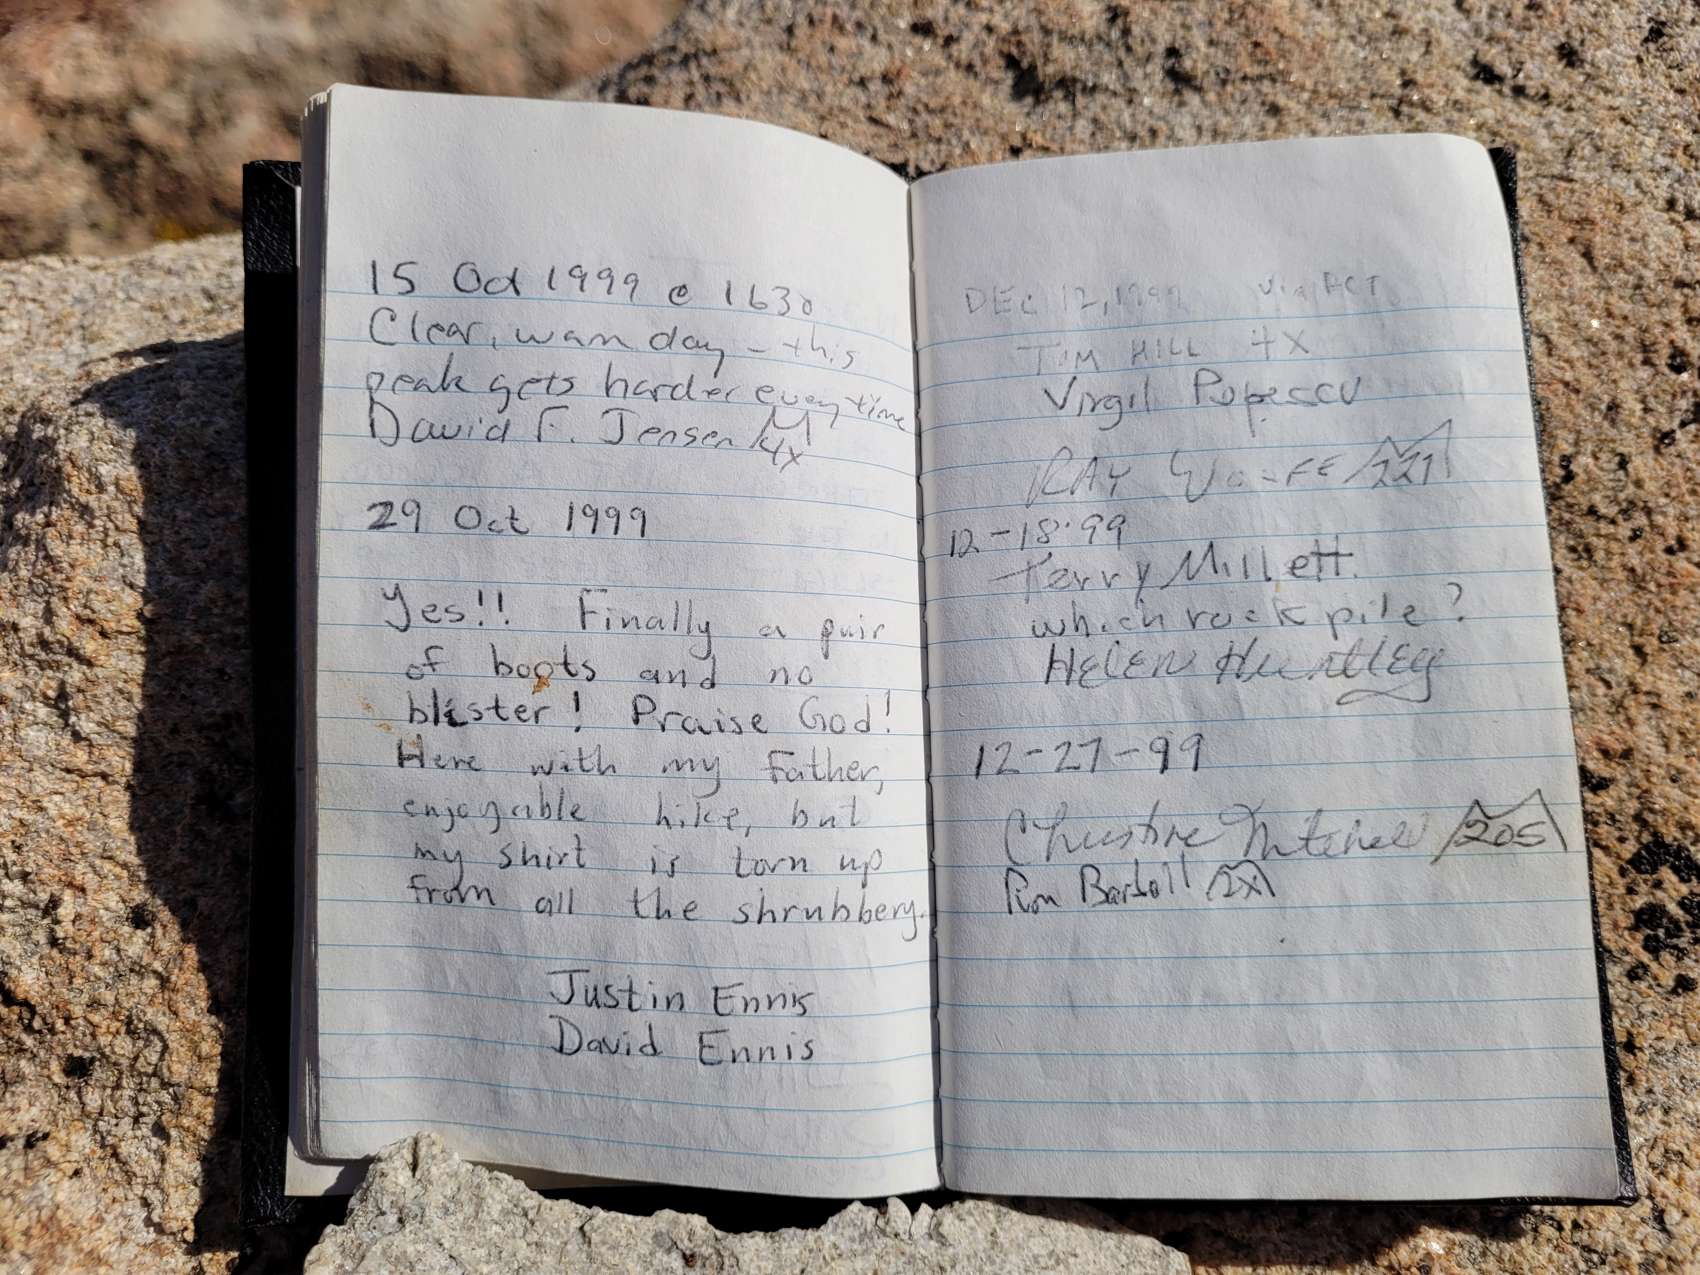 15 Oct 1999 @ 1630
Clear, warm day - this
peak gets harder every time
David F. Jensen 4x
29 Oct 1999
Yes!! Finally a pair
of boots and no
blister! Praise God!
Here with my Father,
enjoyable hike, but
my shirt is torn up
from all the shrubbery.
Justin Ennis
David Ennis
DEC 12, 1999 via PCT
TIM HILL 4X
Virgil Popescu
RAY 221
12-18-99
Terry Millett
which rock pile?
HELEN HuntLEy
12-27-99
Christine Mitchell 205
Ron Bartell 2x